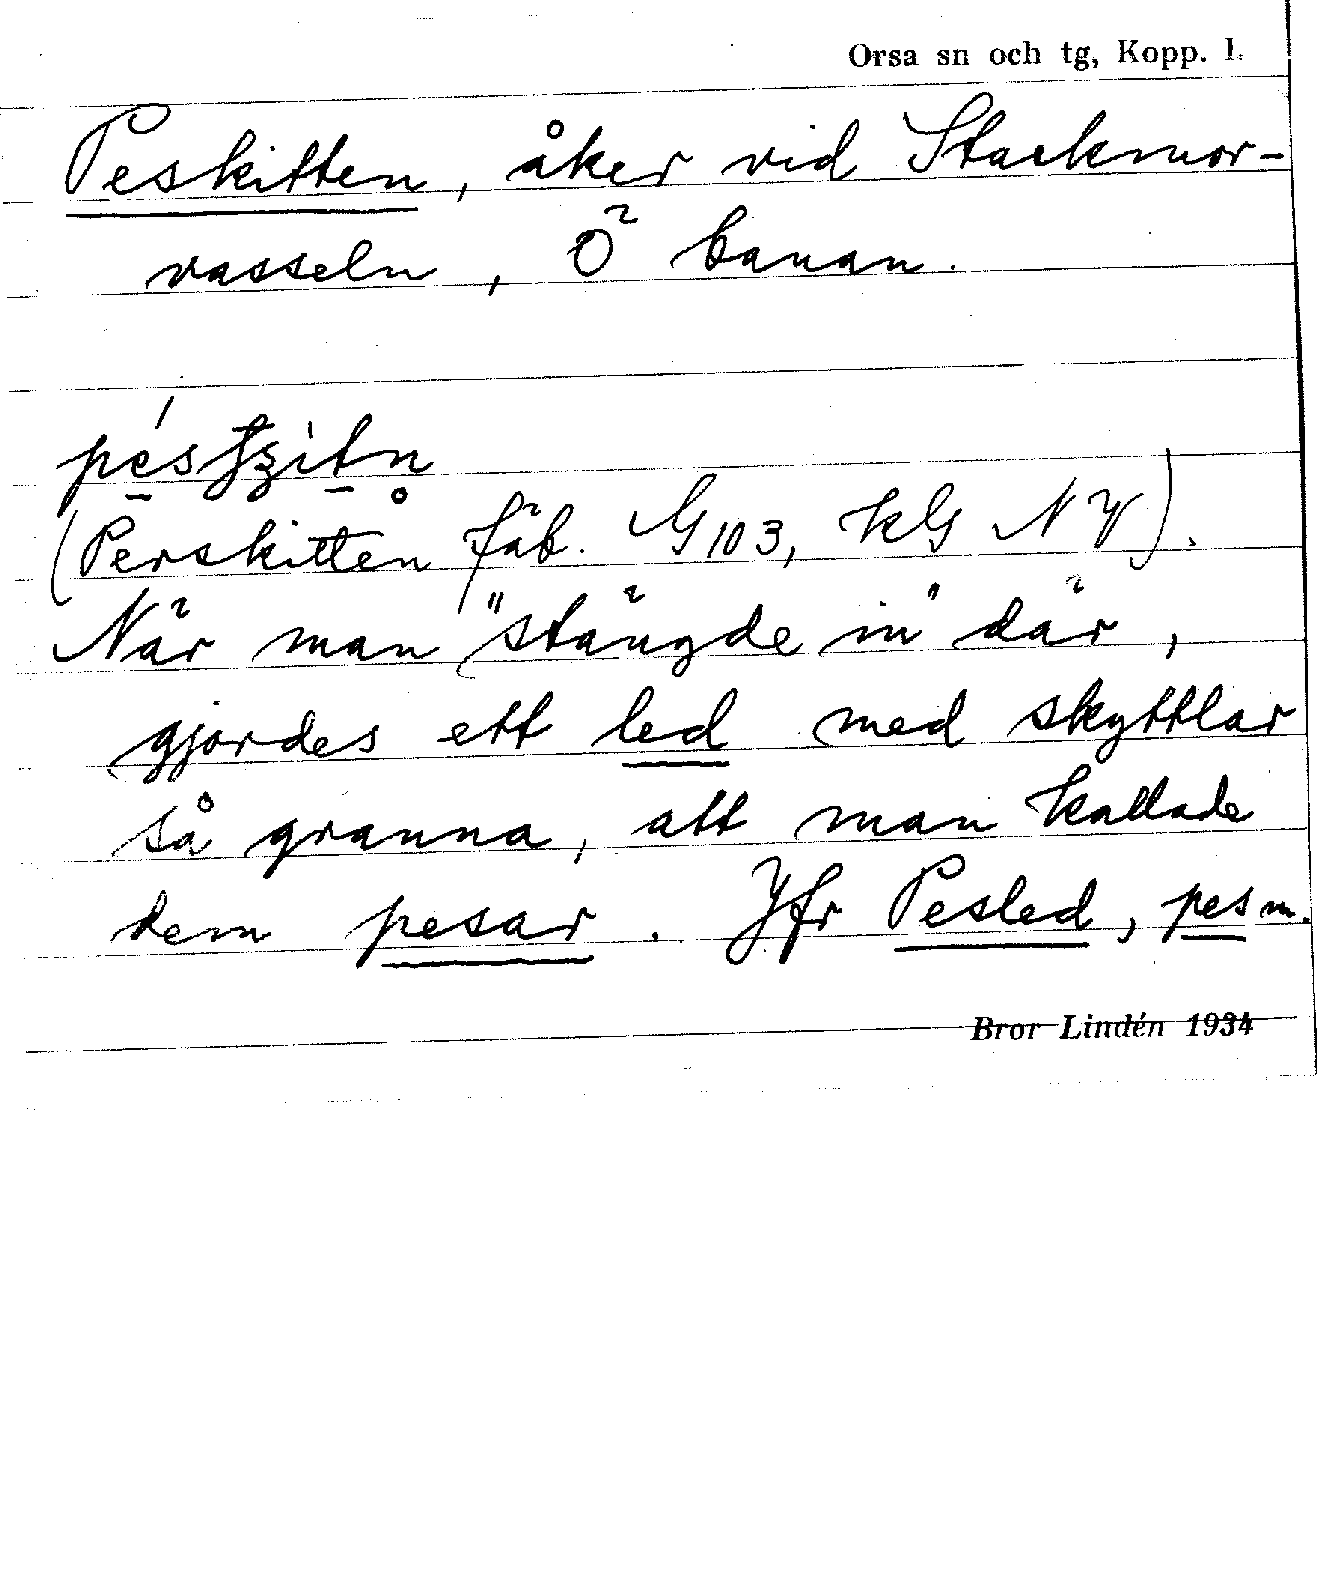 Orsa sn och tg, Kopp. l.
Peskitten, åker vid Stackmor-
vasseln, Ö banan.
(Perskitten fäb. G 103, kG NV).
När man "stängde in" där,
gjordes ett led med skyttlar
så granna, att man kallade
dem pesar. Jfr Pesled, pes m.
Bror Lindén 1934